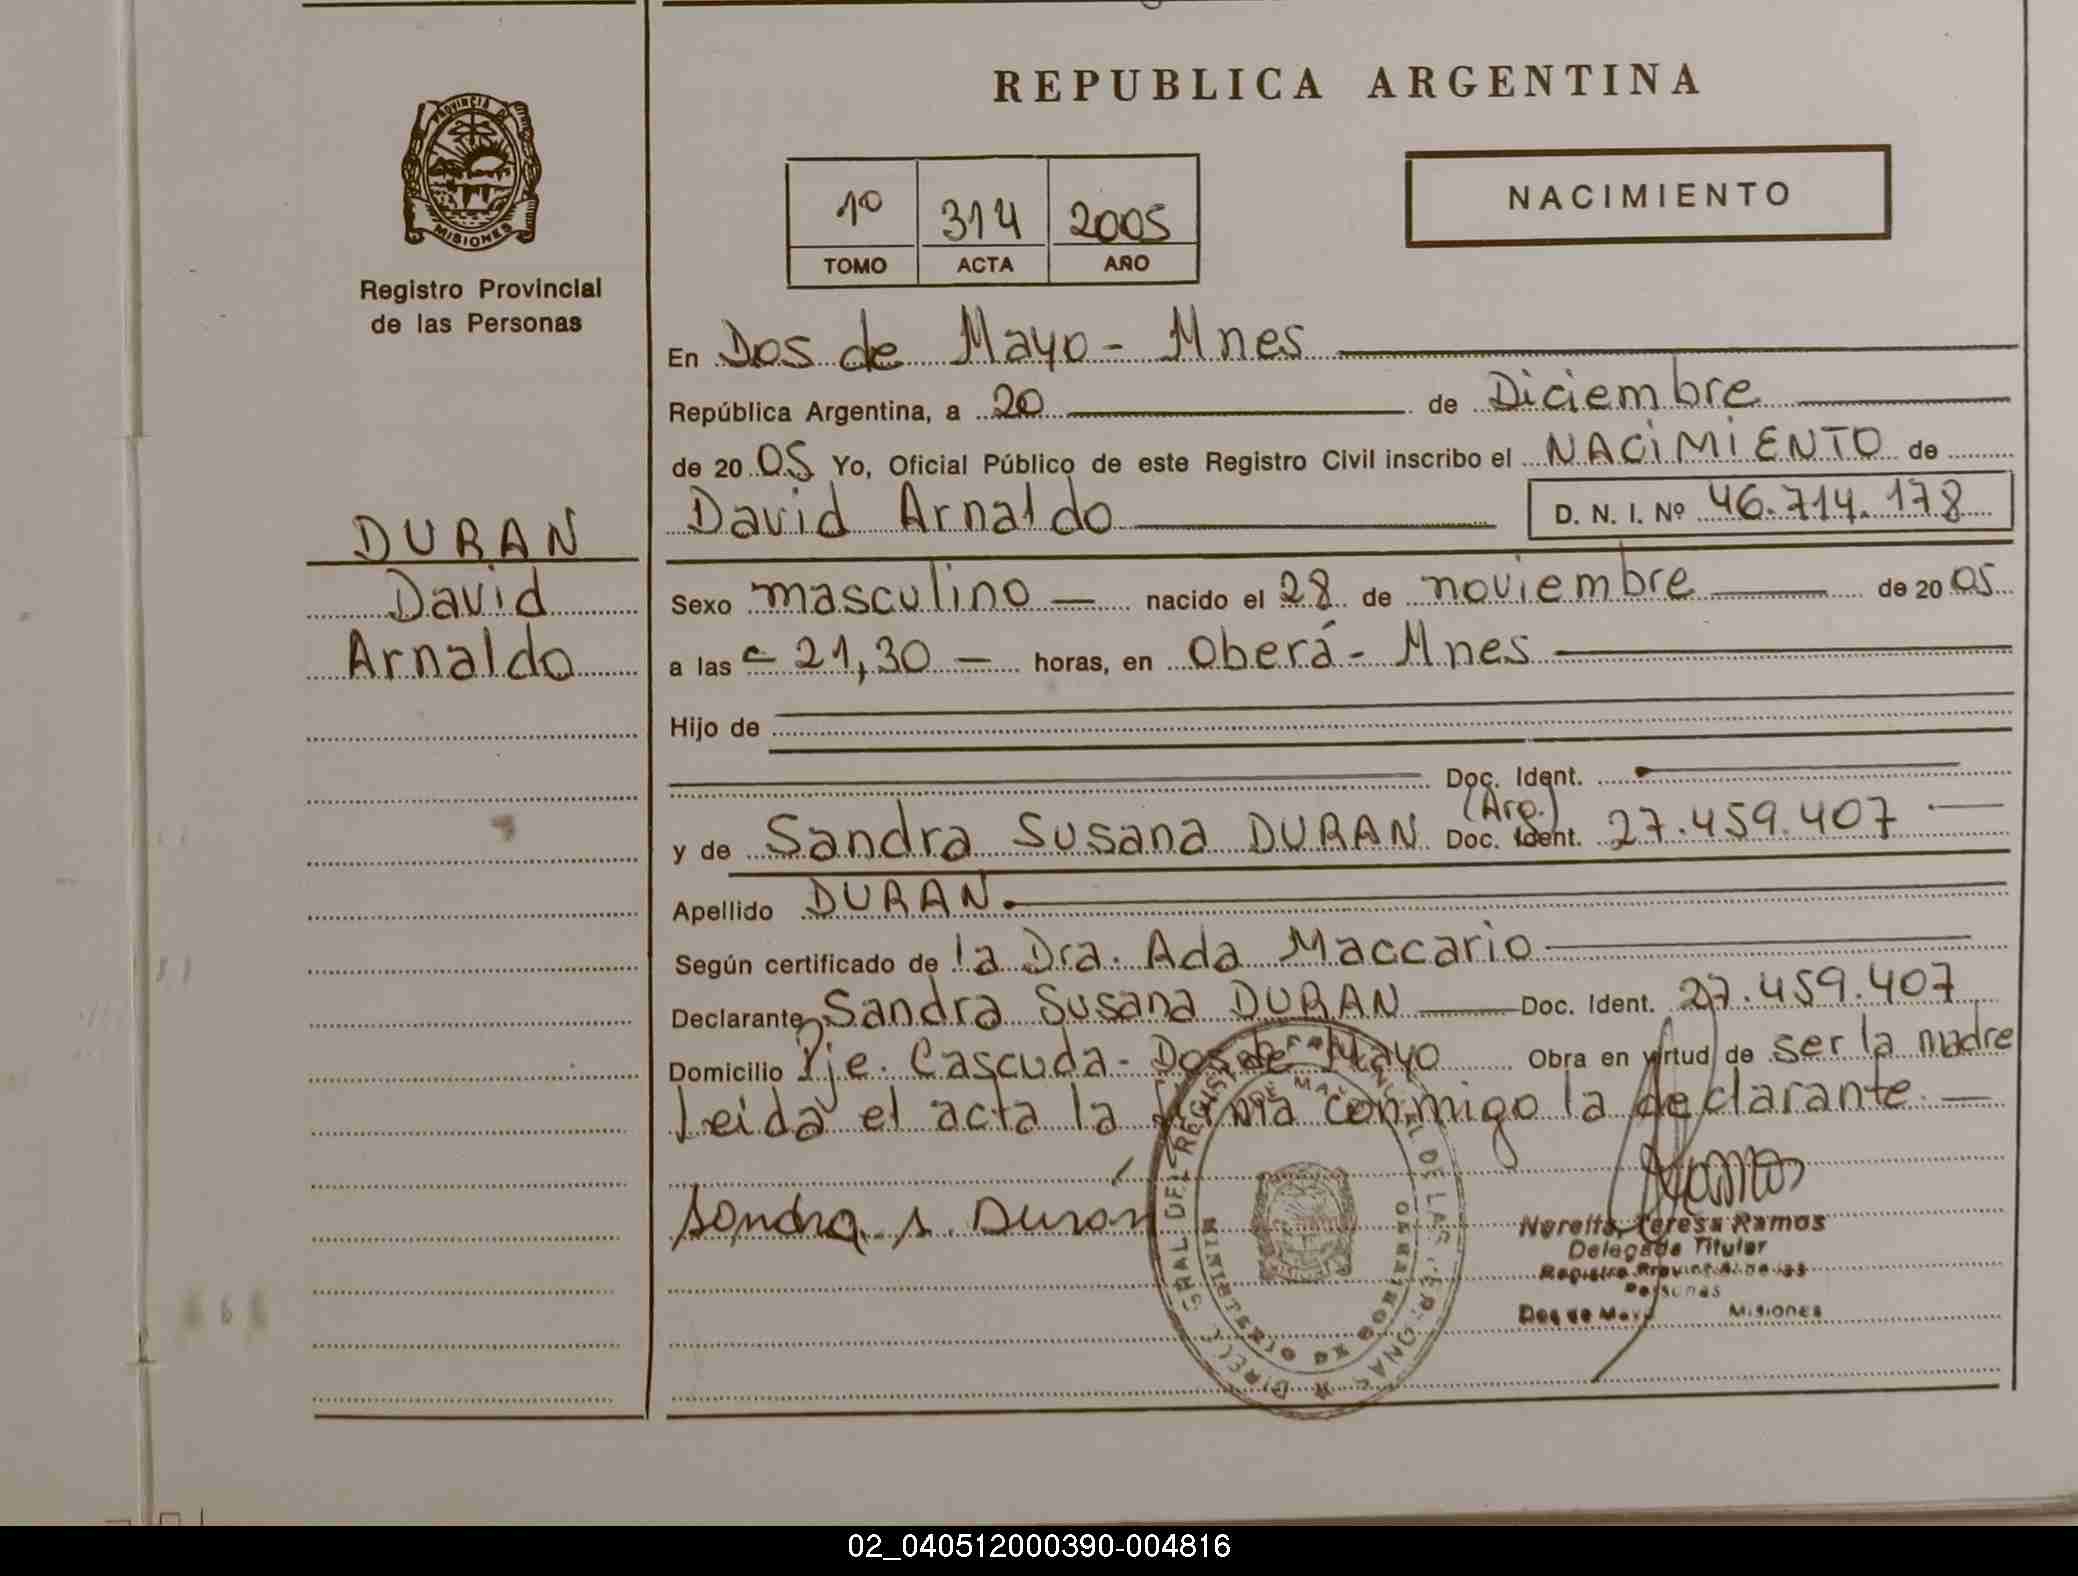 REPUBLICA ARGENTINA
PROVINCIA DE
MISIONES
Registro Provincial
de las Personas
1º 314 2005
TOMO ACTA AÑO
NACIMIENTO
En Dos de Mayo - Mnes
República Argentina, a 20 de Diciembre
de 2005 Yo, Oficial Público de este Registro Civil inscribo el NACIMIENTO de
David Arnaldo D. N. I. Nº 46.714.178
DURAN
David
Arnaldo
Sexo masculino — nacido el 28 de noviembre de 2005
a las 21,30 — horas, en Oberá - Mnes
Hijo de
Doc. Ident.
(Arg.)
y de Sandra Susana DURAN Doc. Ident. 27.459.407
Apellido DURAN.
Según certificado de la Dra. Ada Maccario
Declarante Sandra Susana DURAN Doc. Ident. 27.459.407
Domicilio Pje. Cascuda - Dos de Mayo Obra en virtud de ser la madre
Leida el acta la firma conmigo la declarante. —
Sandra S. Durán
Teresa Ramos
Delegada Titular
Registro Provincial de las
Personas
Dos de Mayo Misiones
MINISTERIO DE GOBIERNO
02_040512000390-004816